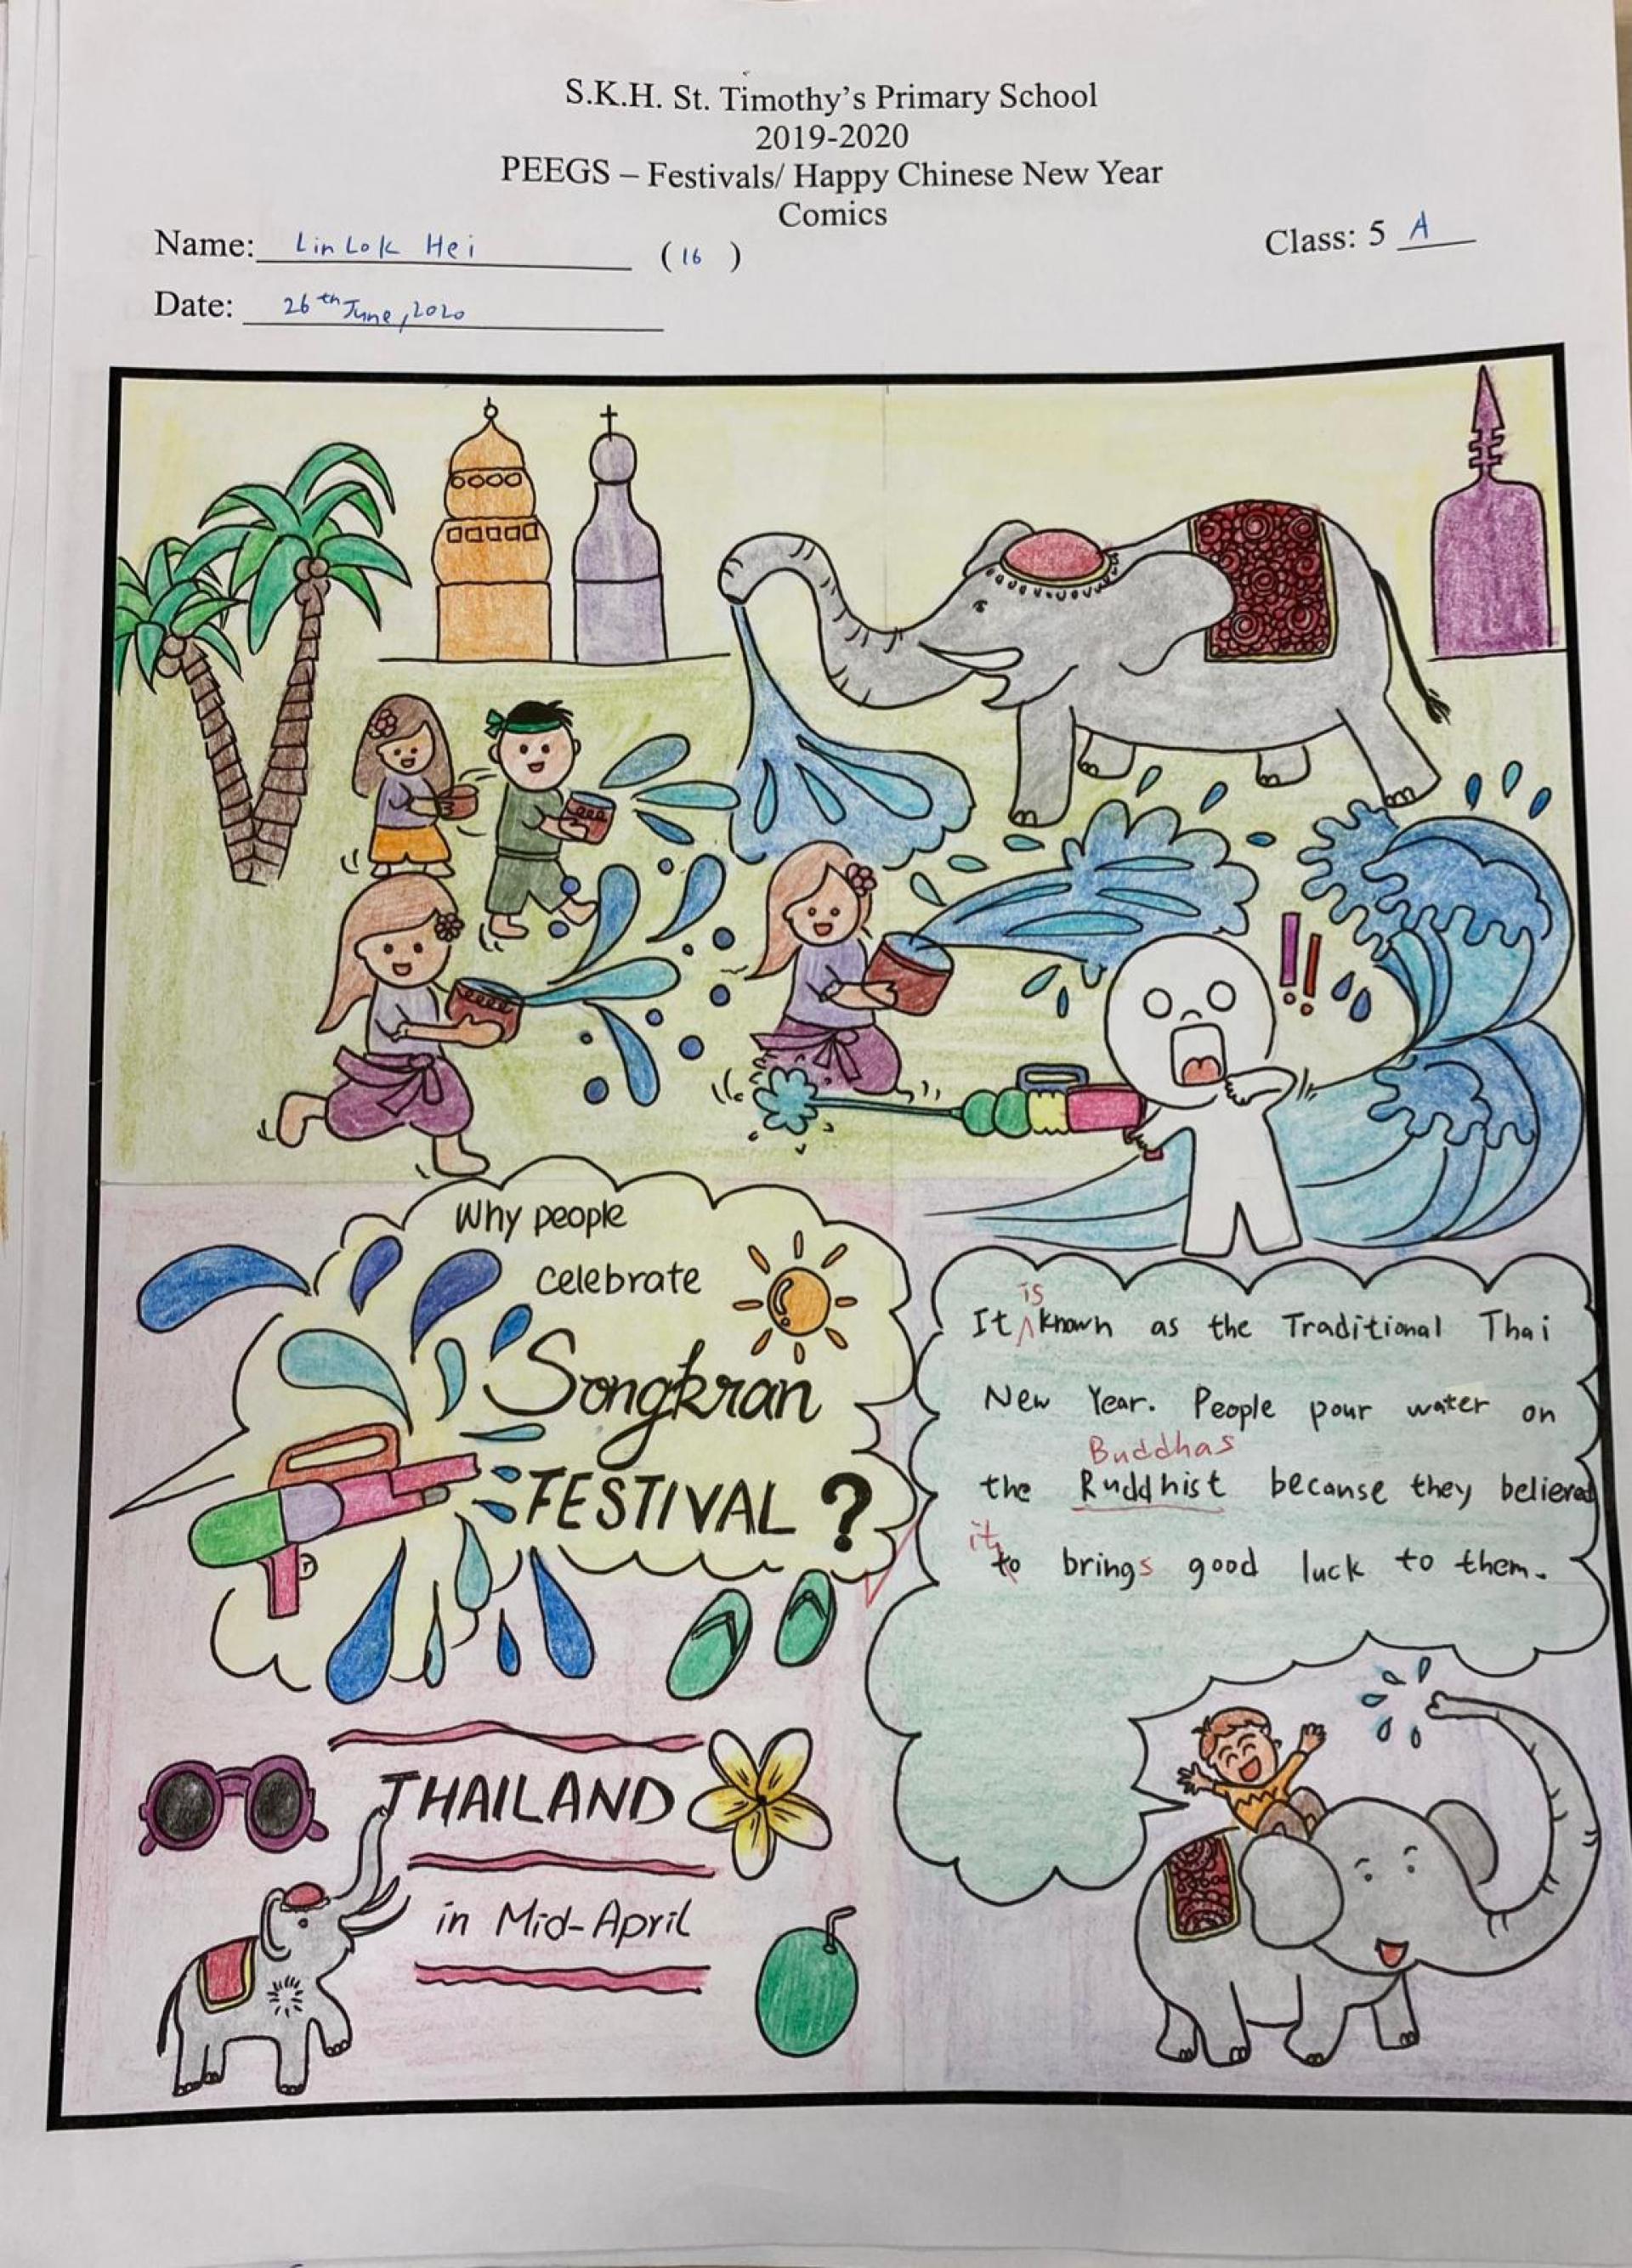 S.K.H. St. Timothy's Primary School
2019-2020
PEEGS – Festivals/ Happy Chinese New Year
Comics
Name: Lin Lok Hei (16)
Class: 5 A
Date: 26th June, 2020
!!
Why people
celebrate
Songkran
FESTIVAL ?
is
It known as the Traditional Thai
New Year. People pour water on
Buddhas
the Ruddhist because they believed
it
to brings good luck to them.
THAILAND
in Mid-April